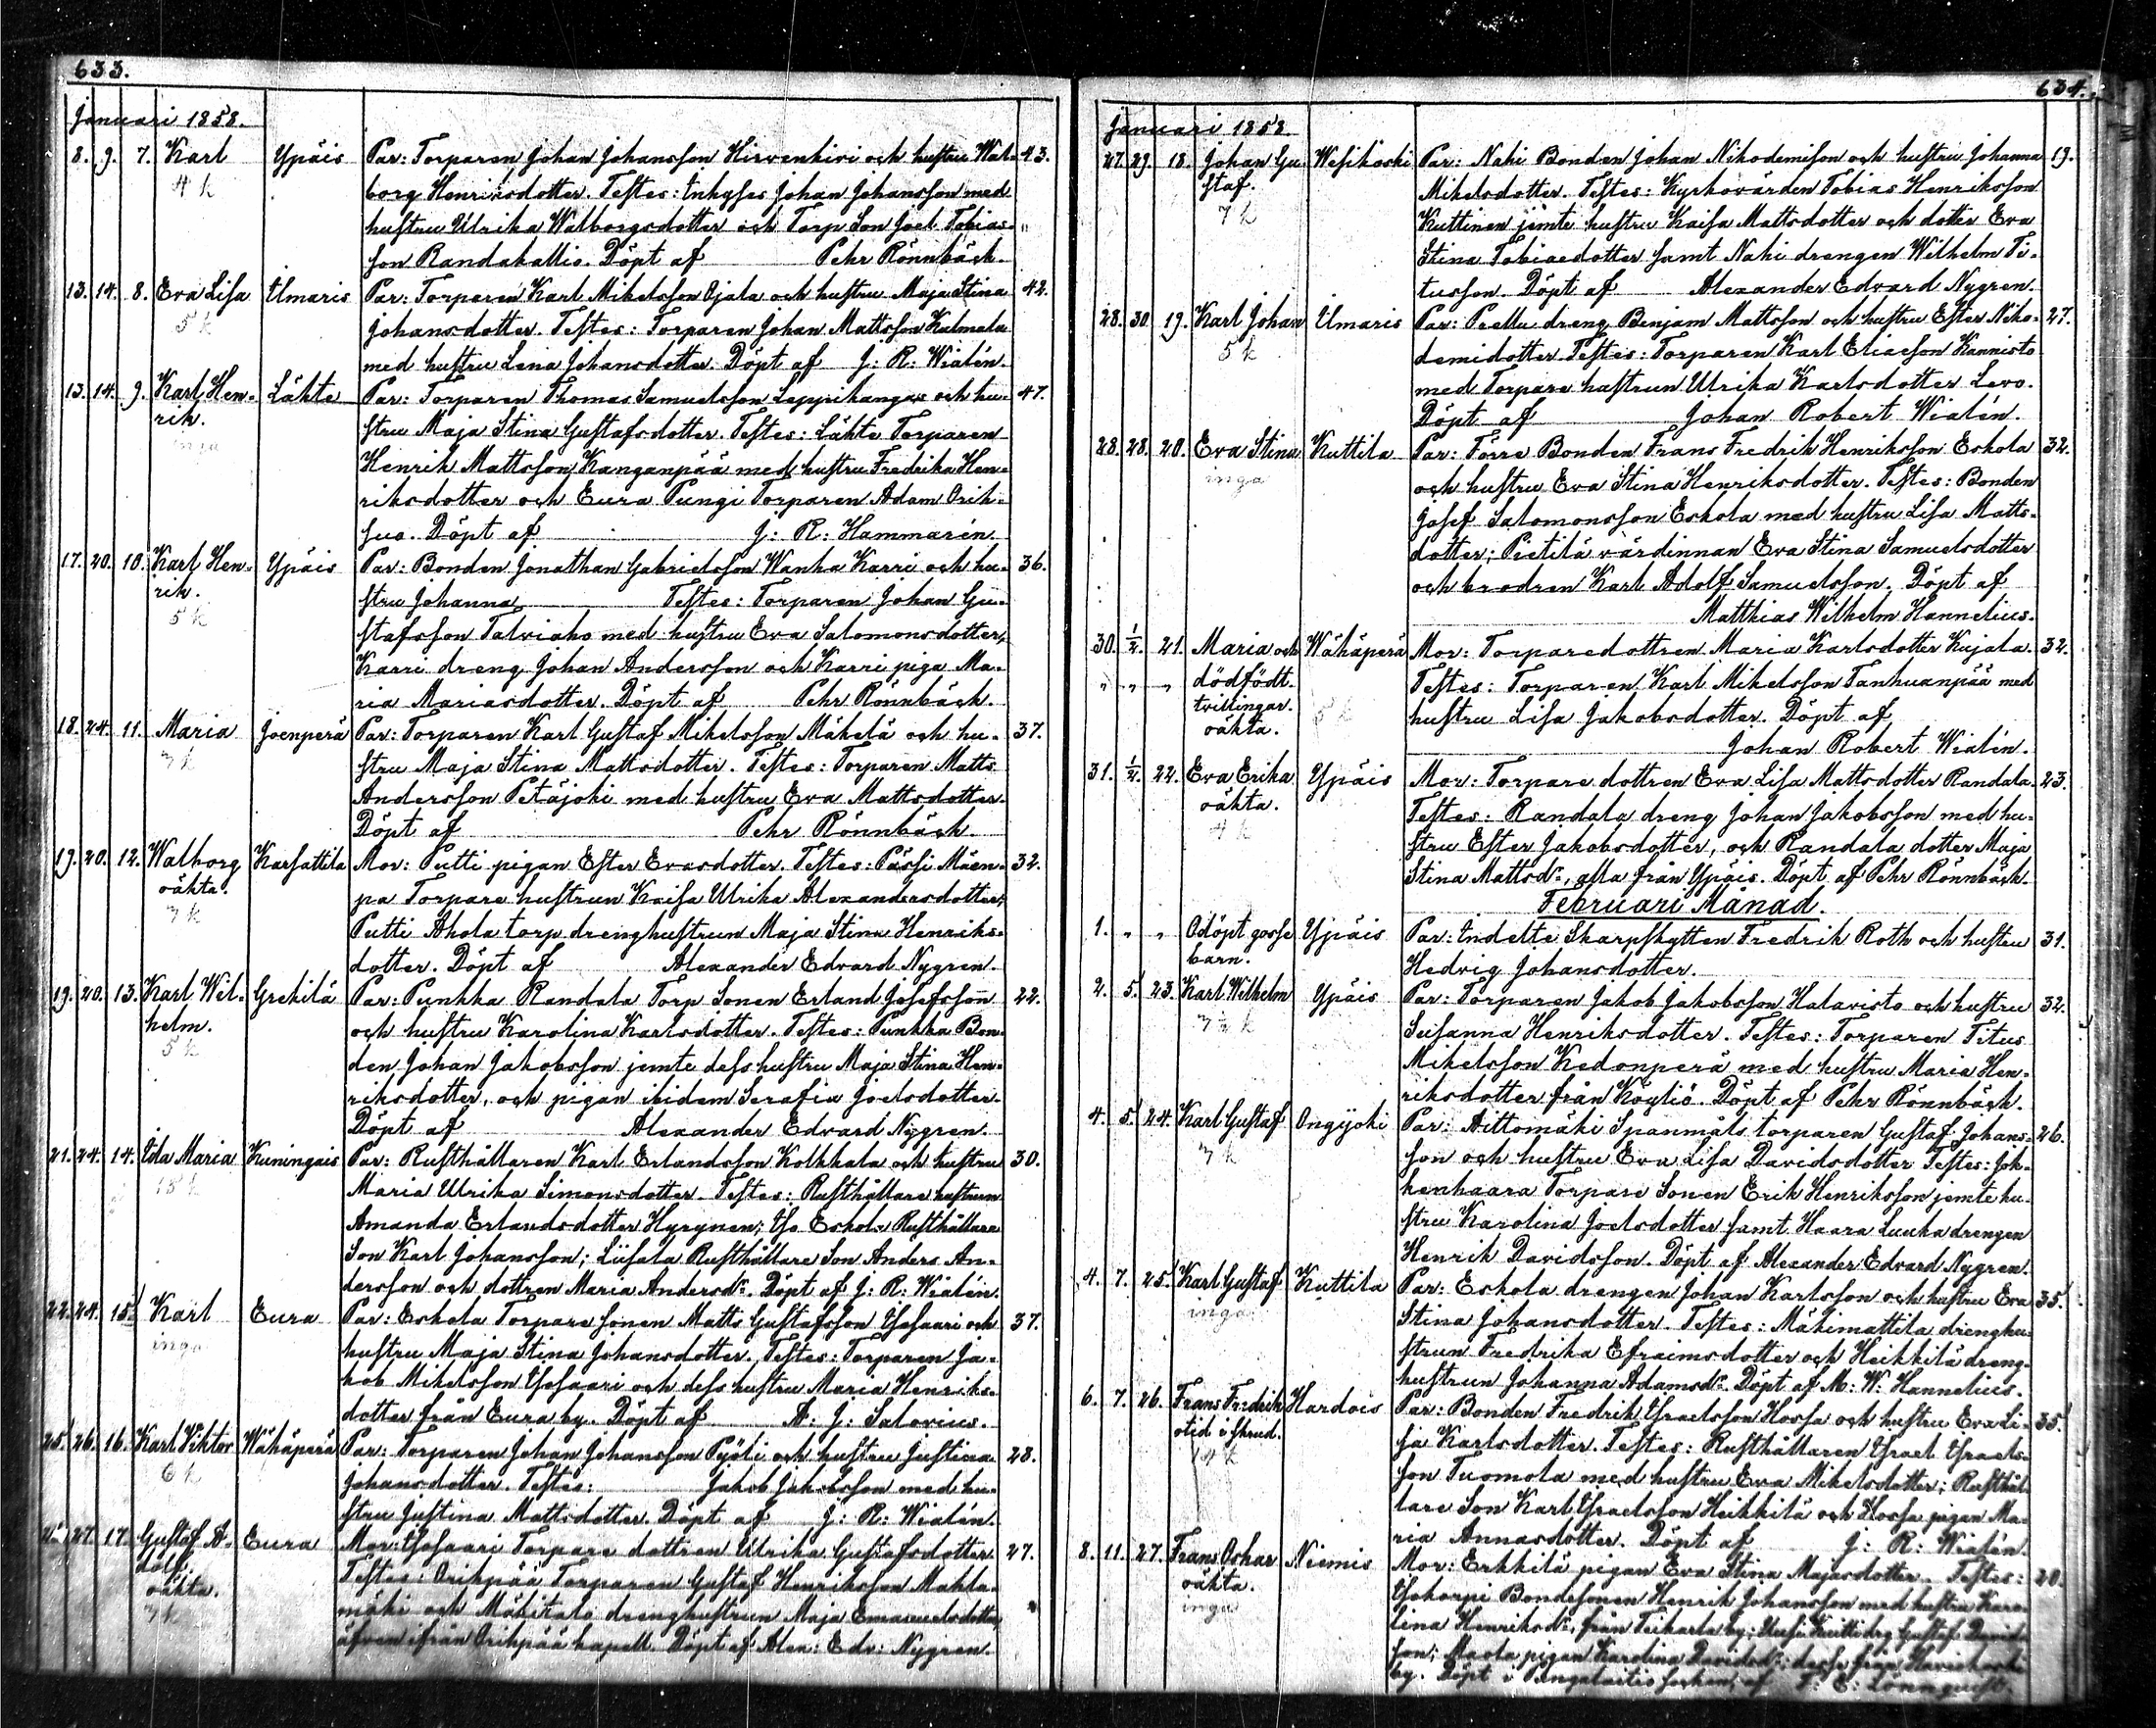 633.
Januari 1858.
8. 9. 7. Karl Ypäis Par: Torparen Johan Johansson Hirvenkivi och hustru Wal- 43.
4 k borg Henriksdotter. Testes: Inhyses Johan Johansson med
hustru Ulrika Walborgsdotter och Torp Son Joel Tobias-
son Randakallio. Döpt af Pehr Rönnbäck.
13. 14. 8. Eva Lisa Ilmaris Par: Torparen Karl Mikelsson Ojala och hustru Maja Stina 42.
5 k Johansdotter. Testes: Torparen Johan Mattsson Kulmala
med hustru Lena Johansdotter. Döpt af J: R: Wialén.
13. 14. 9. Karl Hen- Lähte Par: Torparen Thomas Samuelsson Leppikangas och hu- 47.
rik. stru Maja Stina Gustafsdotter. Testes: Lähte Torparen
inga Henrik Mattsson Kanganpää med hustru Fredrika Hen-
riksdotter och Eura Pungi Torparen Adam Orih-
suo. Döpt af J: R: Hammarén.
17. 20. 10. Karl Hen- Ypäis Par: Bonden Jonathan Gabrielsson Wanha Karri och hu- 36.
rik. stru Johanna Testes: Torparen Johan Gu-
5 k stafsson Talviaho med hustru Eva Salomonsdotter,
Karri dreng Johan Andersson och Karri piga Ma-
ria Mariasdotter. Döpt af Pehr Rönnbäck.
18. 24. 11. Maria Joenperä Par: Torparen Karl Gustaf Mikelsson Mäkelä och hu- 37.
7 k stru Maja Stina Mattsdotter. Testes: Torparen Matts
Andersson Petäjoki med hustru Eva Mattsdotter.
Döpt af Pehr Rönnbäck.
19. 20. 12. Walborg Karsattila Mor: Putti pigan Ester Evasdotter. Testes: Pässi Mäen- 32.
oäkta. pa Torpare hustrun Kaisa Ulrika Alexandersdotter;
7 k Putti Ahola torp drenghustrun Maja Stina Henriks-
dotter. Döpt af Alexander Edvard Nygren.
19. 20. 13. Karl Wil- Grekilä Par: Punkka Randala Torp Sonen Erland Josefsson 22.
helm. och hustru Karolina Karlsdotter. Testes: Punkka Bon-
5 k den Johan Jakobsson jemte dess hustru Maja Stina Hen-
riksdotter, och pigan ibidem Serafia Joelsdotter.
Döpt af Alexander Edvard Nygren.
21. 24. 14. Ida Maria Kuningais Par: Rusthållaren Karl Erlandsson Kolkkala och hustru 30.
15 k Maria Ulrika Simonsdotter. Testes: Rusthållare hustrun
Amanda Erlandsdotter Hyrynen; Iso Eskola Rusthållare
Son Karl Johansson; Liisala Rusthållare Son Anders An-
dersson och dottren Maria Andersdr. Döpt af J: R: Wialén.
22. 24. 15. Karl Eura Par: Eskola Torpare Sonen Matts Gustafsson Isosaari och 37.
inga hustru Maja Stina Johansdotter. Testes: Torparen Ja-
kob Mikelsson Isosaari och dess hustru Maria Henriks-
dotter från Eura by. Döpt af A: J: Salovius.
25. 26. 16. Karl Viktor Wähäperä Par: Torparen Johan Johansson Pyöli och hustru Justina 28.
6 k Johansdotter. Testes: Jakob Jakobsson med hu-
stru Justina Mattsdotter. Döpt af J: R: Wialén.
27. 17. Gustaf A- Eura Mor: Isosaari Torpare dottren Ulrika Gustafsdotter. 27.
dolf. Testes: Orihpää Torparen Gustaf Henriksson Mahla-
oäkta. mäki och Mäkitalo drenghustrun Maja Emanuelsdotter,
7 k äfven ifrån Orihpää kapell. Döpt af Alex: Edv: Nygren.
634.
Januari 1858
27. 29. 18. Johan Gu- Wesikoski Par: Nahi Bonden Johan Nikodemisson och hustru Johanna 19.
staf. Mikelsdotter. Testes: Kyrkovärden Tobias Henriksson
7 k Kuttinen jemte hustru Kaisa Mattsdotter och dotter Eva
Stina Tobiaedotter samt Nahi drengen Wilhelm Ti-
tusson. Döpt af Alexander Edvard Nygren.
28. 30. 19. Karl Johan Ilmaris Par: Prellu dreng Benjam Mattsson och hustru Ester Niko- 27.
5 k demidotter. Testes: Torparen Karl Eliasson Kannisto
med Torpare hustrun Ulrika Karlsdotter Levo.
Döpt af Johan Robert Wialén.
28. 28. 20. Eva Stina Kuttila Par: Förre Bonden Frans Fredrik Henriksson Eskola 32.
inga och hustru Eva Stina Henriksdotter. Testes: Bonden
Josef Salomonsson Eskola med hustru Lisa Matts-
dotter; Pietilä värdinnan Eva Stina Samuelsdotter
och brodren Karl Adolf Samuelsson. Döpt af
Matthias Wilhelm Hannelius.
30. 1/2. 21. Maria och Wähäperä Mor: Torparedottren Maria Karlsdotter Kujala. 32.
" " " dödfödt. Testes: Torparen Karl Mikelsson Tanhuanpää med
tvillingar. 5 k hustru Lisa Jakobsdotter. Döpt af
oäkta. Johan Robert Wialén.
31. 1/2. 22. Eva Erika Ypäis Mor: Torpare dottren Eva Lisa Mattsdotter Randala. 23.
oäkta. Testes: Randala dreng Johan Jakobsson med hu-
4 k stru Ester Jakobsdotter, och Randala dotter Maja
Stina Mattsdr, alla från Ypäis. Döpt af Pehr Rönnbäck.
Februari Månad.
1. " " Odöpt gosse Ypäis Par: Indelte Skarpskytten Fredrik Roth och hustru 31.
barn. Hedvig Johansdotter.
2. 5. 23. Karl Wilhelm Ypäis Par: Torparen Jakob Jakobsson Halavisto och hustru 32.
7 1/2 k Susanna Henriksdotter. Testes: Torparen Titus
Mikelsson Kedonperä med hustru Maria Hen-
riksdotter från Köyliö. Döpt af Pehr Rönnbäck.
4. 5. 24. Karl Gustaf Ongijoki Par: Aittomäki Spanmåls torparen Gustaf Johans- 26.
7 k son och hustru Eva Lisa Davidsdotter. Testes: Jok-
kenhaara Torpare Sonen Erik Henriksson jemte hu-
stru Karolina Joelsdotter samt Haara Luuka drengen
Henrik Davidsson. Döpt af Alexander Edvard Nygren.
4. 7. 25. Karl Gustaf Kuttila Par: Eskola drengen Johan Karlsson och hustru Eva 35.
inga Stina Johansdotter. Testes: Mäkimattila drenghu-
strun Fredrika Efraimsdotter och Heikkilä dreng-
hustrun Johanna Adamsdr. Döpt af M: W: Hannelius.
6. 7. 26. Frans Fredrik Hardois Par: Bonden Fredrik Israelsson Hossa och hustru Eva Li- 35.
14 k sa Karlsdotter. Testes: Rusthållaren Israel Israels-
son Tuomola med hustru Eva Mikelsdotter; Rusthål-
lare Son Karl Israelsson Heikkilä och Hossa pigan Ma-
ria Annasdotter. Döpt af J: R: Wialén.
8. 11. 27. Frans Oskar Niemis Mor: Erkkilä pigan Eva Stina Majasdotter. Testes: 20.
oäkta. Isokorpi Bondesonen Henrik Johansson med hustru Karo-
inga lina Henriksdr, från Teikarla by; Gustaf Davids-
son; pigan Karolina Davidsdr; från
by. Döpt i af Lönnqvist.